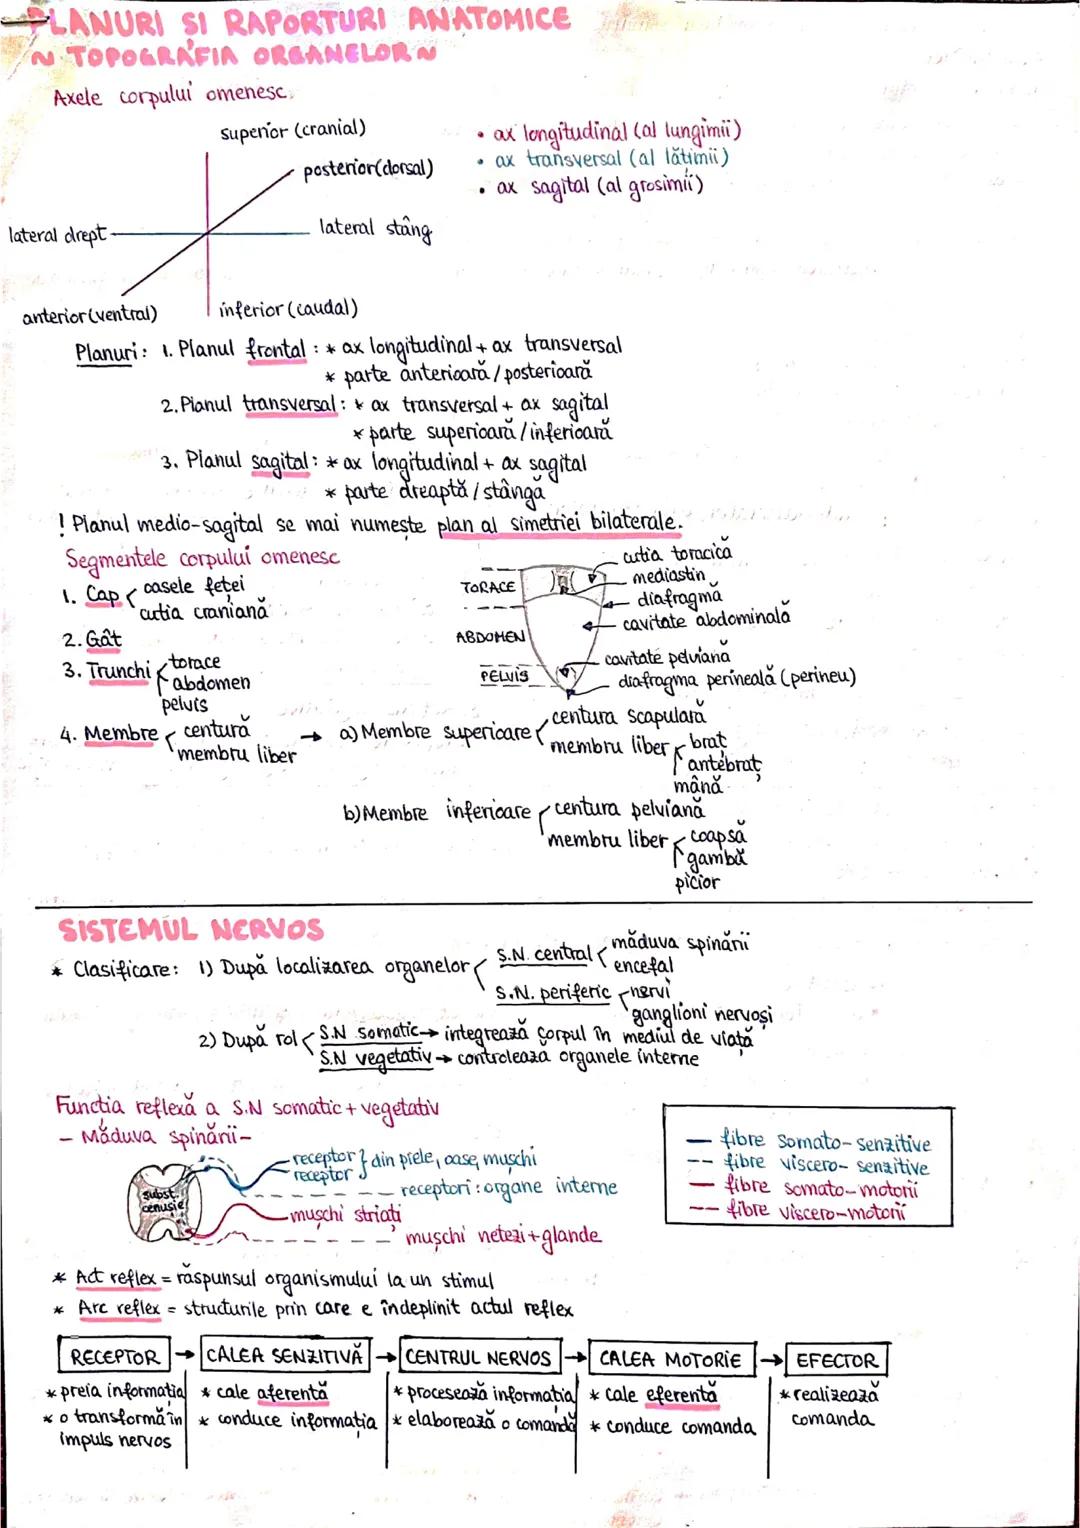 PLANURI SI RAPORTURI ANATOMICE
~ TOPOGRAFIA ORGANELOR ~
Axele corpului omenesc.
superior (cranial)
posterior (dorsal)
lateral drept
lateral stâng
anterior (ventral)
inferior (caudal)
• ax longitudinal (al lungimii)
• ax transversal (al lătimii)
• ax sagital (al grosimii)
Planuri: 1. Planul frontal : * ax longitudinal + ax transversal
* parte anterioară / posterioară
2. Planul transversal : * ax transversal + ax sagital
* parte superioară / inferioară
3. Planul sagital : * ax longitudinal + ax sagital
* parte dreaptă / stângă
! Planul medio-sagital se mai numește plan al simetriei bilaterale.
Segmentele corpului omenesc
1. Cap
oasele feței
cutia craniană
2. Gât
3. Trunchi
torace
abdomen
pelvis
4. Membre
centură
membru liber
TORACE
ABDOMEN
PELVIS
cutia toracică
mediastin
diafragmă
cavitate abdominală
cavitate pelviană
diafragma perineală (perineu)
→ a) Membre superioare
centura scapulară
membru liber
braț
antebraț
mână
b) Membre inferioare
centura pelviană
membru liber
coapsă
gambă
picior
SISTEMUL NERVOS
* Clasificare: 1) După localizarea organelor
S.N. central
măduva spinării
encefal
S.N. periferic
nervi
ganglioni nervoși
2) După rol
S.N somatic → integrează corpul în mediul de viață
S.N vegetativ → controlează organele interne
Funcția reflexă a S.N somatic + vegetativ
- Măduva spinării -
subst. cenusie
receptor } din piele, oase, mușchi
receptor
receptori: organe interne
mușchi striați
mușchi netezi + glande
— fibre somato-senzitive
-- fibre viscero-senzitive
— fibre somato-motorii
-- fibre viscero-motorii
* Act reflex = răspunsul organismului la un stimul
* Arc reflex = structurile prin care e îndeplinit actul reflex
RECEPTOR → CALEA SENZITIVĂ → CENTRUL NERVOS → CALEA MOTORIE → EFECTOR
* preia informația
* o transformă în
impuls nervos
* cale aferentă
* conduce informația
* procesează informația
* elaborează o comandă
* cale eferentă
* conduce comanda
* realizează
comanda